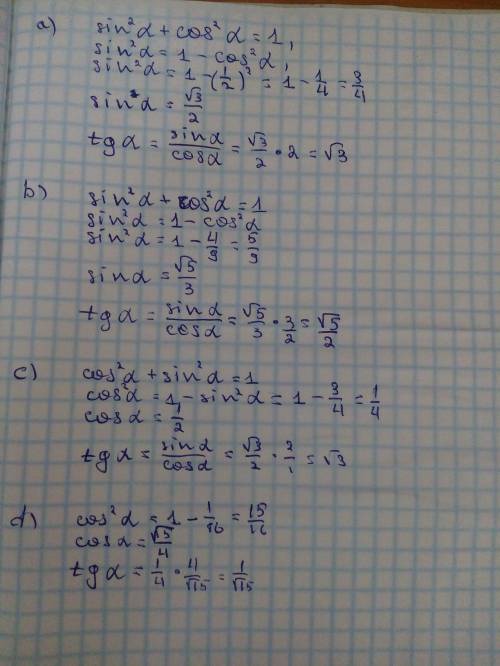 a) sin²α + cos²α = 1,
sin²α = 1 - cos²α,
sin²α = 1 - (1/2)² = 1 - 1/4 = 3/4
sin²α = √3/2
tg α = sinα/cosα = √3/2 · 2 = √3
b) sin²α + cos²α = 1
sin²α = 1 - cos²α
sin²α = 1 - 4/9 = 5/9
sinα = √5/3
tg α = sinα/cosα = √5/3 · 3/2 = √5/2
c) cos²α + sin²α = 1
cos²α = 1 - sin²α = 1 - 3/4 = 1/4
cosα = 1/2
tg α = sinα/cosα = √3/2 · 2/1 = √3
d) cos²α = 1 - 1/16 = 15/16
cosα = √15/4
tg α = 1/4 · 4/√15 = 1/√15